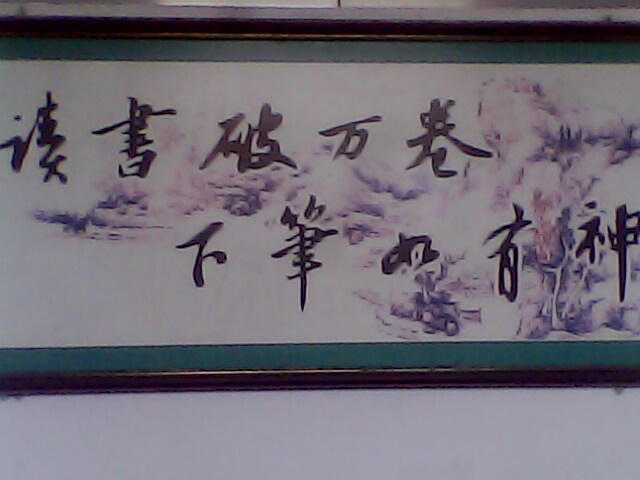 读書破万卷
下筆如有神